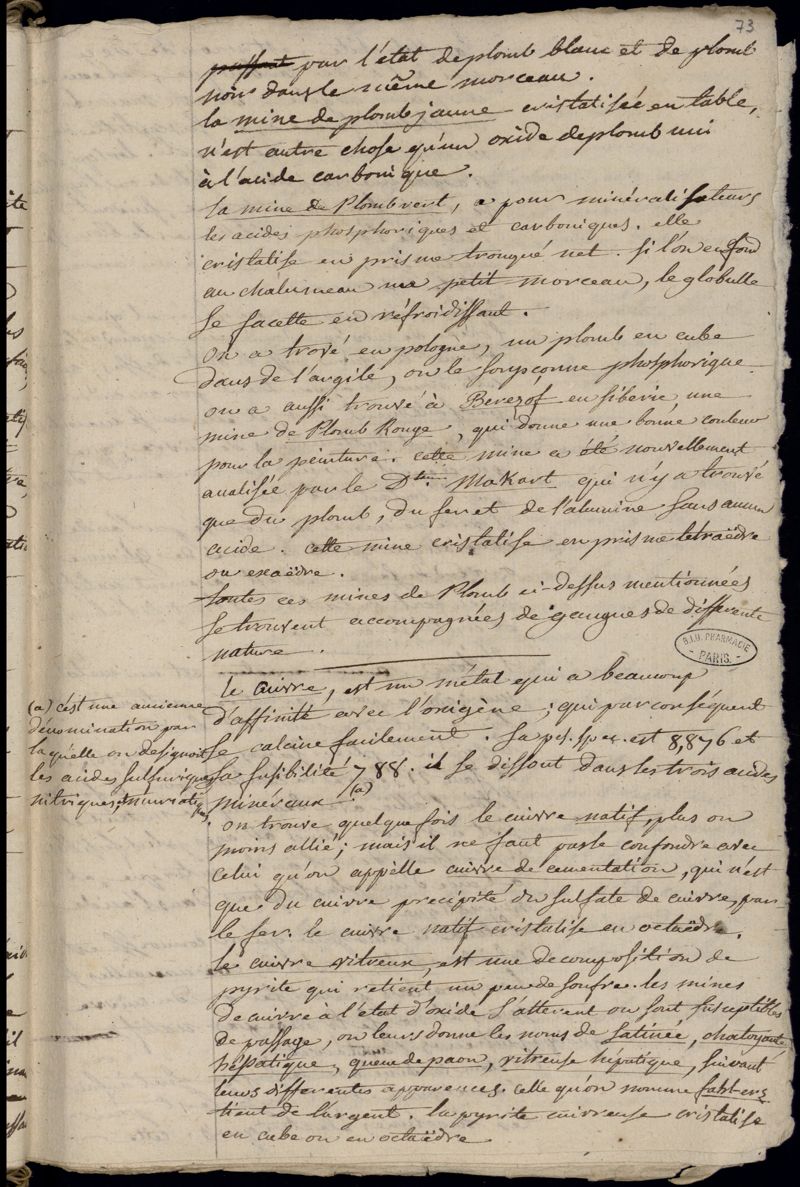 73
passant par l'état de plomb blanc et de plomb
noir dans le même morceau.
la mine de plomb jaune cristalisée en table,
n'est autre chose qu'un oxide de plomb uni
à l'acide carbonique.
la mine de Plomb vert, a pour minéralisateurs
les acides phosphoriques et carboniques. elle
cristalise en prisme tronqué net. si l'on en fond
au chalumeau un petit morceau, le globulle
se facette en réfroidissant.
on a trové en pologne, un plomb en cube
dans de l'argile, on le soupçonne phosphorique
on a aussi trouvé à Berezof en siberie, une
mine de Plomb Rouge, qui donne une bonne couleur
pour la peinture. cette mine a été nouvellement
analisée par le D. MaKart qui n'y a trouvé
que du plomb, du fer et de l'alumine sans aucun
acide. cette mine cristalise en prisme tétraëdre
ou exaëdre.
toutes ces mines de Plomb ci-dessus mentionnées
se trouvent accompagnées de gangues de differente
nature.
B.I.U. PHARMACIE
- PARIS. -
le cuivre, est un métal qui a beaucoup
d'affinité avec l'oxigène; qui par conséquent
se calcine facilement. sa pes. spec. est 8,876 et
sa fusibilité 788. il se dissout dans les trois acides
minéraux (a)
(a) c'est une ancienne
dénomination par
laquelle on designoit
les acides sulfuriques
nitriques, et muriatiques.
on trouve quelque fois le cuivre natif, plus ou
moins allié; mais il ne faut pas le confondre avec
celui qu'on appèlle cuivre de cementation, qui n'est
que du cuivre précipité du sulfate de cuivre, par
le fer. le cuivre natif cristalise en octaëdre.
le cuivre vitreux, est une decomposition de
pyrite qui retient un peu de soufre. les mines
de cuivre à l'état d'oxide s'atterent ou sont susceptibles
de passage, on leurs donne les noms de satinée, chatoyante
hépatique, queue de paon, vitreuse hépatique, suivant
leurs differentes apparences. celle qu'on nomme fahl-erz
tient de l'argent. la pyrite cuivreuse cristalise
en cube ou en octaëdre